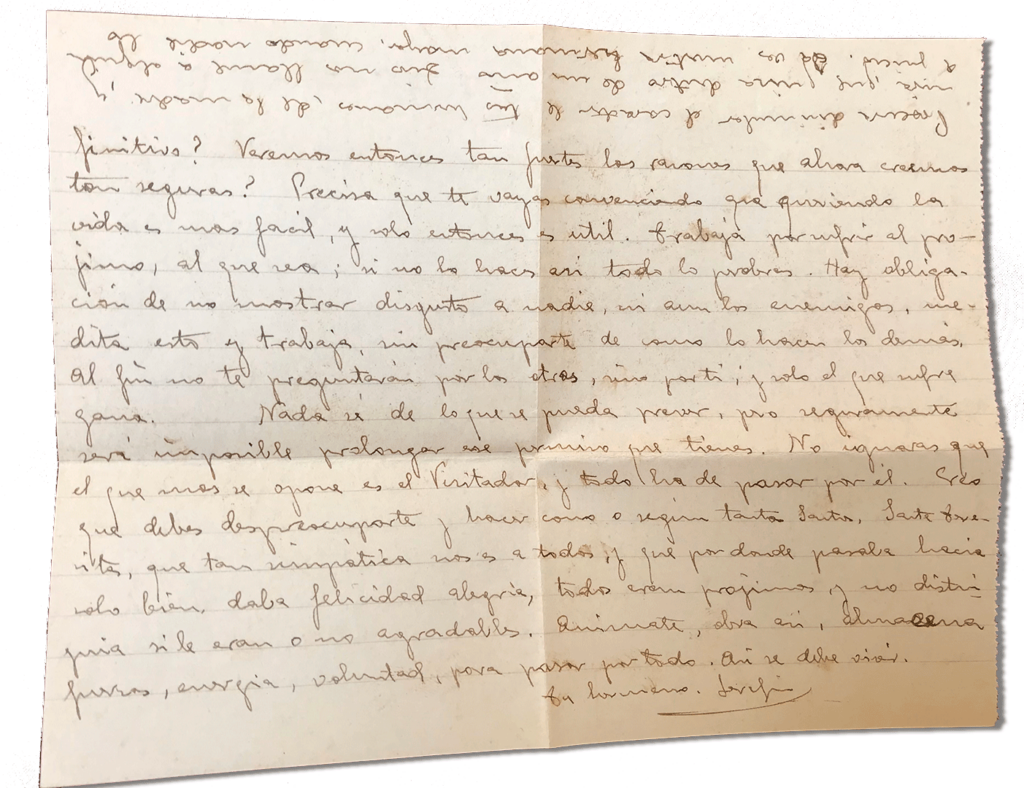 finitivo? Veremos entonces tan fuertes las razones que ahora creemos
tan seguras? Precisa que te vayas convenciendo que queriendo la
vida es mas facil, y solo entonces es util. trabaja por sufrir al pro-
jimo, al que sea; si no lo haces asi todo lo probres. Hay obliga-
ción de no mostrar disgusto a nadie, ni aun los enemigos, me-
dita esto y trabaja, sin preocuparte de como lo hacen los demás.
Al fin no te preguntarán por los otros, sino por ti; y solo el que sufre
gana. Nada sé de lo que se pueda prever, pro seguramente
será imposible prolongar ese permiso que tienes. No ignoras que
el que mas se opone es el Visitador, y todo ha de pasar por él. Creo
que debes despreocuparte y hacer como o según tanta Santa, Santa tere-
sita, que tan simpática nos es a todos, y que por donde pasaba hacia
solo bien, daba felicidad alegria, todos eran projimos, y no distin-
guia si le eran o no agradables. Animate, obra asi, almacena
fuerzas, energia, voluntad, para pasar por todo. Asi se debe vivir.
tu hermano.
el corazón de
hermana
cuando nadie te